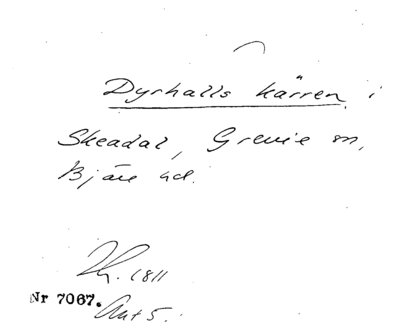 Dyrhalls kärren i
Skeadal, Grevie sn,
Bjäre hd.
1811
Nr 7067. Akt 5.